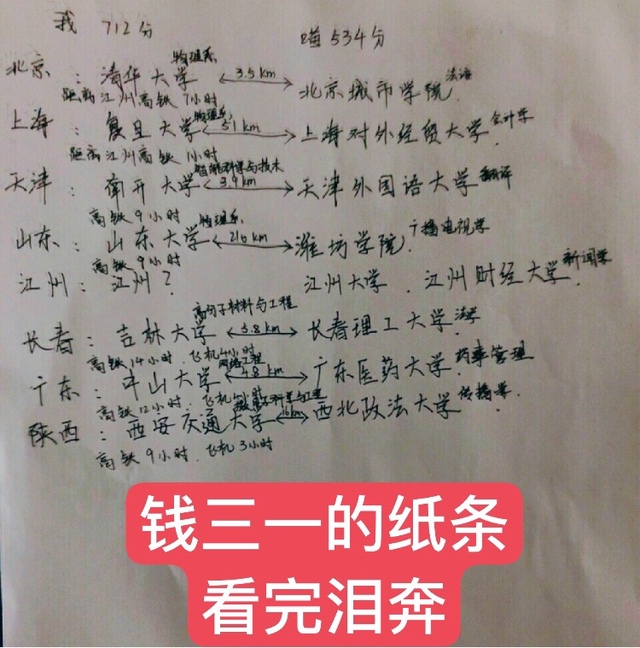 我 712分 喵 534分
北京：清华大学 物理系 3.5km 北京城市学院 法语
距离江州高铁7小时
上海：复旦大学 物理系 5.1km 上海对外经贸大学 会计学
距离江州高铁1小时
天津：南开大学 智能科学与技术 3.9km 天津外国语大学 翻译
高铁9小时
山东：山东大学 物理系 216km 潍坊学院 广播电视学
高铁9小时
江州：江州？ 江州大学．江州财经大学 新闻学
长春：吉林大学 高分子材料与工程 3.8km 长春理工大学 法学
高铁14小时．飞机4小时
广东：中山大学 网络工程 4.8km 广东医药大学 药事管理
高铁12小时．飞机
陕西：西安交通大学 16km 西北政法大学 传播学
高铁9小时．飞机3小时
钱三一的纸条
看完泪奔